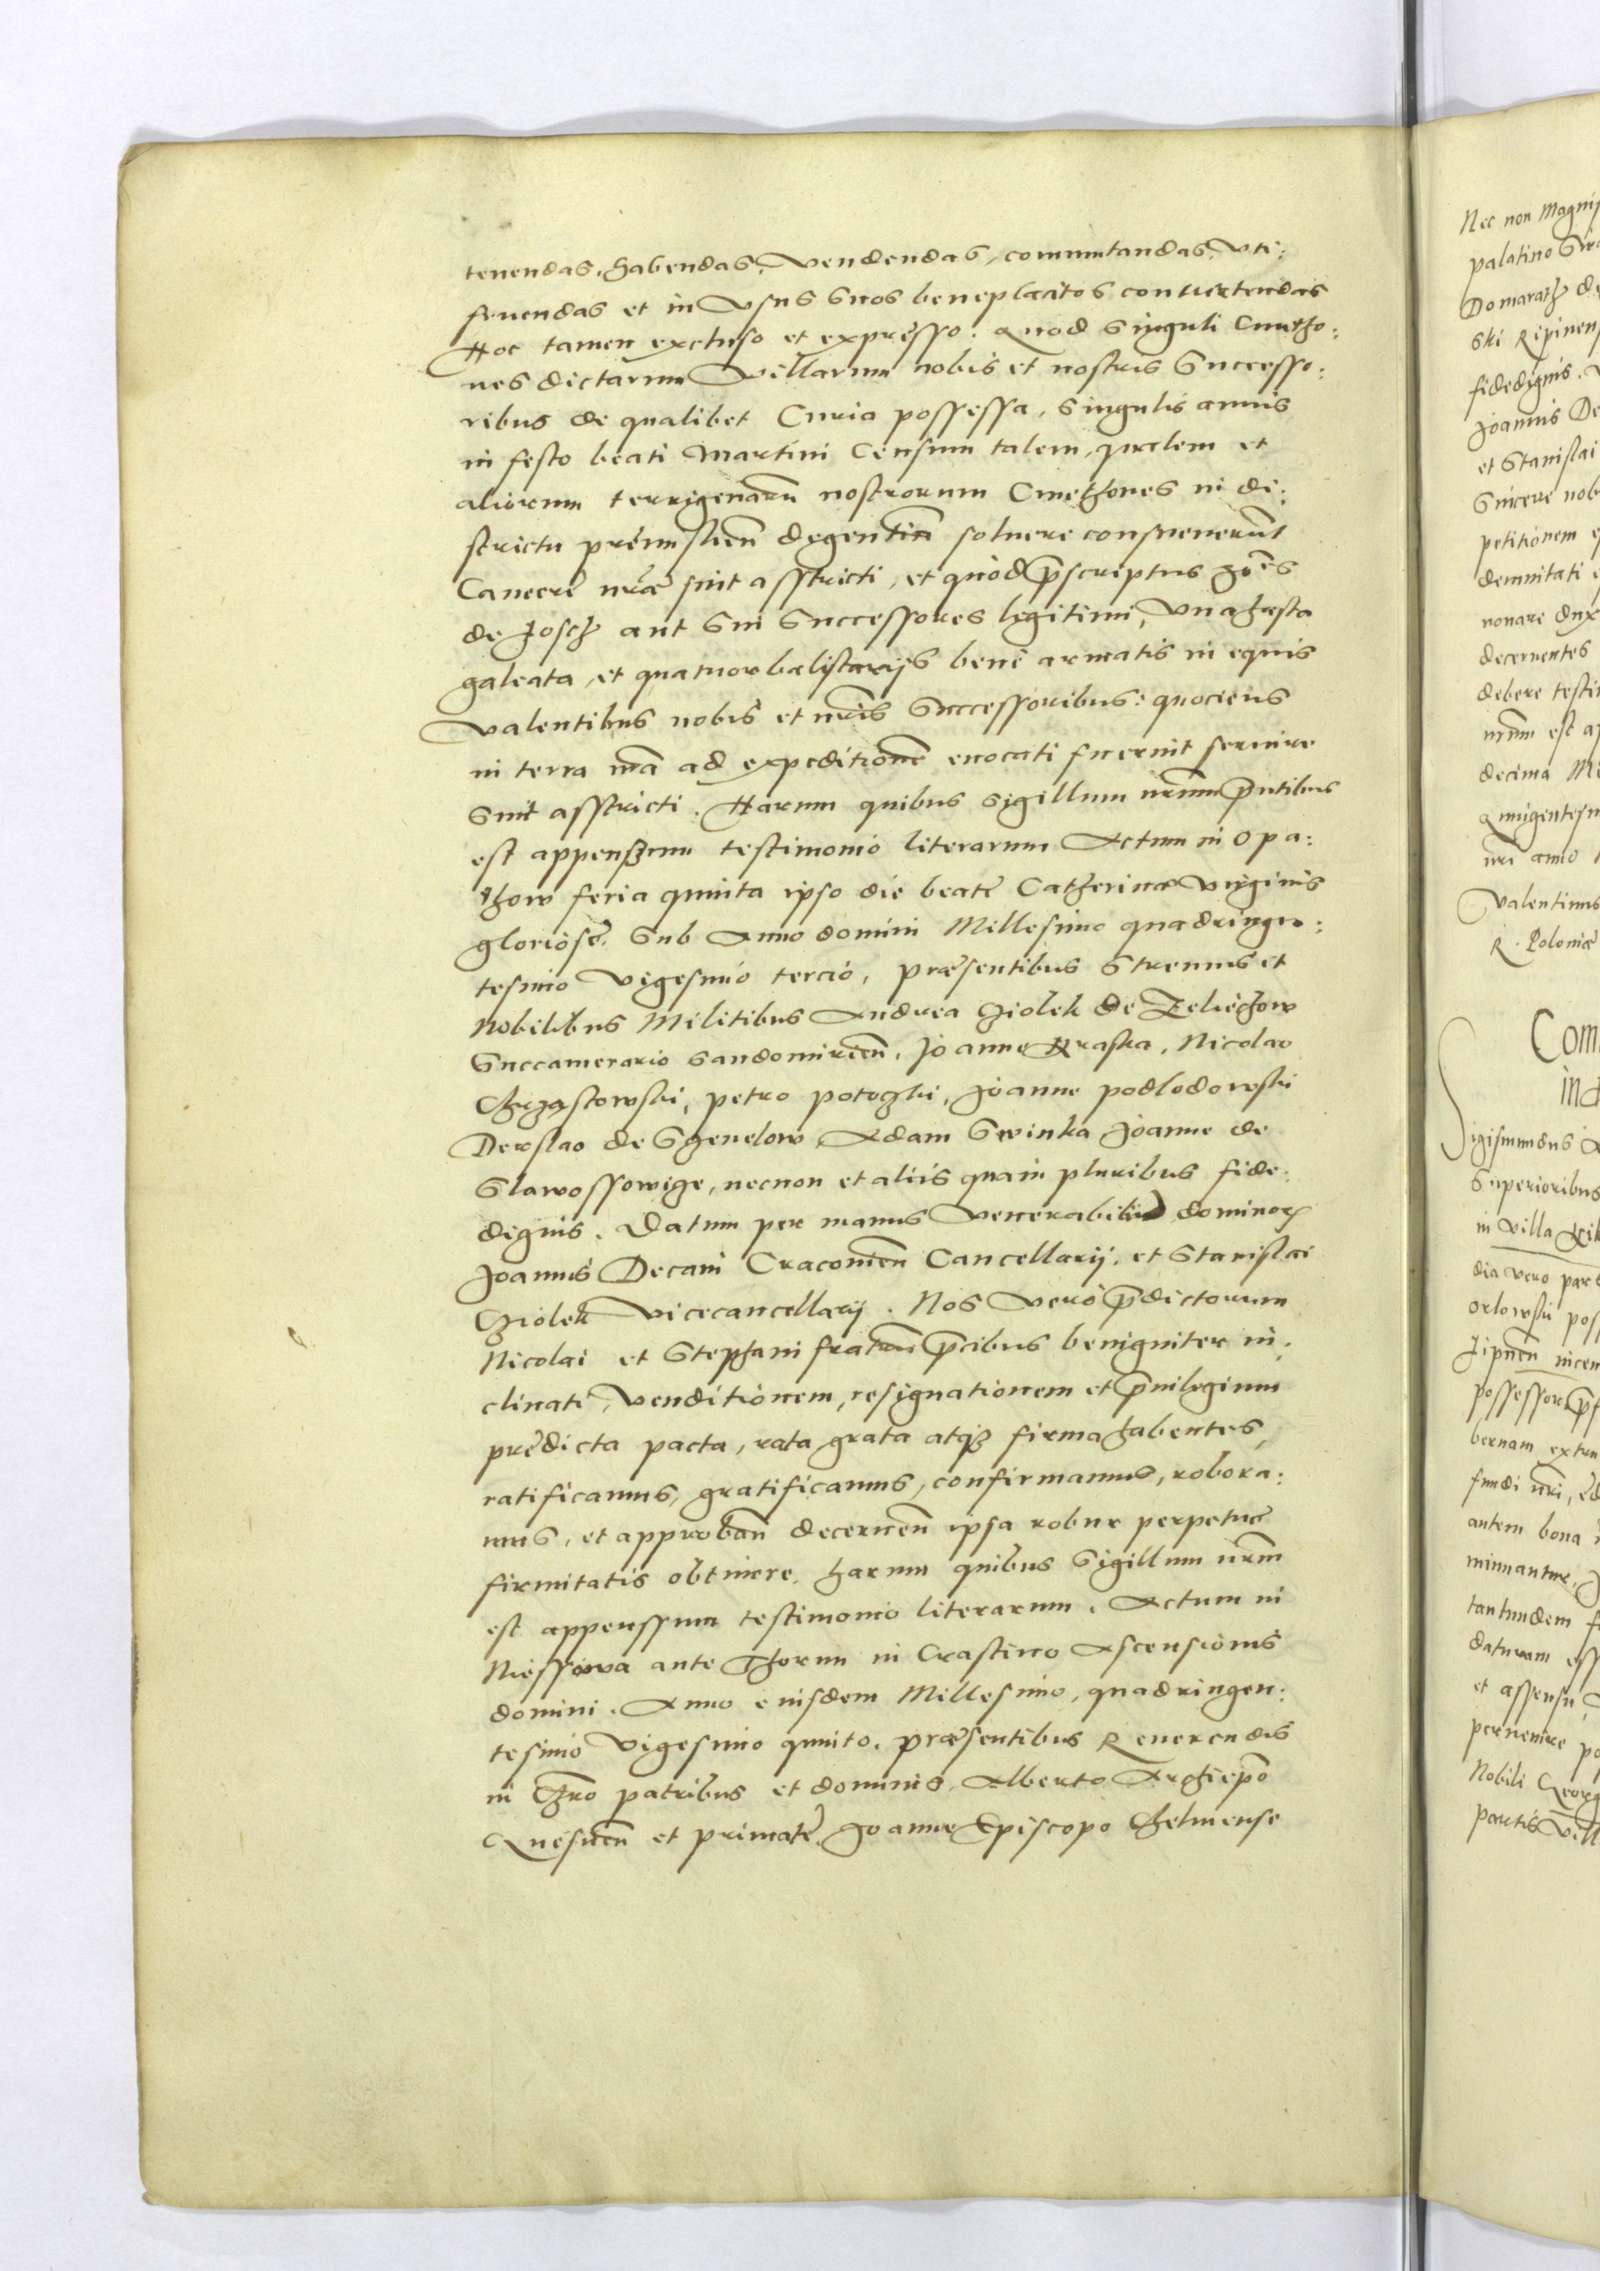 tenendas, habendas, vendendas, commutandas, uti:
fruendas et in Usus suos beneplacitos convertendas
Hoc tamen excluso et expresso: Quod singuli Cmetho:
nes dictarum Villarum nobis et nostris Successo:
ribus de qualibet Curia possessa, singulis annis
in festo beati Martini Censum talem, qualem et
aliorum terrigenarū nostrorum Cmethones in di:
strictu premisslien̄ degentiū soluere consueuerūt
Camere nr̄ae sint asstricti, et quòd p̄scriptus Joēs
de Josch aut Sui Successores legitimi, Una hasta
galeata, et quatuor balistarijs bene armatis in equis
valentibus nobis et nr̄is Successoribus: quociens
in terra nr̄a ad expeditionē euocati fuerint seruire
Sint asstricti. Harum quibus sigillum nr̄um p̄ntibus
est appensum testimonio literarum Actum in Opa:
thow feria quinta ipso die beate Catherinæ Virginis
gloriosę. Sub Anno domini Millesimo quadringen:
tesimo Vigesimo tercio, præsentibus Strenuis et
Nobilibus Militibus Andrea Cziolek de Zeliechow
Succamerario Sandomirien̄, Joanne Kraska, Nicolao
Chrząstowski, petro potoczki, Joanne podlodowski
Derslao de Szenelow Adam Swinka Joanne de
Slawossowicze, necnon et aliis quam pluribus fide:
dignis. Datum per manus Venerabiliū dominorꝫ
Joannis Decani Cracouien̄ Cancellarij, et Stanislai
Cziolek Vicecancellarij. Nos Verò p̄dictorum
Nicolai et Stephani fratrum p̄cibus benigniter in:
clinati, Venditionem, resignationem et p̄uilegium
predicta pacta, rata grata atqꝫ firma habentes,
ratificamus, gratificamus, confirmamus, robora:
mus, et approban̄ decernen̄ ipsa robur perpetue
firmitatis obtinere, harum quibus Sigillum nr̄um
est appenssum testimonio literarum. Actum in
Niessowa ante Thorun in Crastino Ascensionis
domini. Anno eiusdem Millesimo, quadringen:
tesimo Vigesimo quinto, præsentibus Reuerendis
in Chr̄o patribus et dominis, Alberto Archiep̄o
Gnesnen̄ et primate, Joanne Episcopo Chelmense
Nec non
palatino
Domarath
ski Ripinen
fidedignis.
Joannis De
et Stanislai
Sincere nob
petitionem
demnitati
nonare dux
decernentes
debere testi
nr̄um est
decima
quingentesi
nr̄i anno
Valentinus
R. Poloniæ
Com
ind
Sigismundus
Superioribus
in Villa
dia vero part
orlowski pos
Lipnen̄
possessor p̄
bernam extru
fundi nr̄i,
antem bona
minuantur,
tantundem
daturam ess
et assensu,
peruenire
Nobili Georg
partis Vill